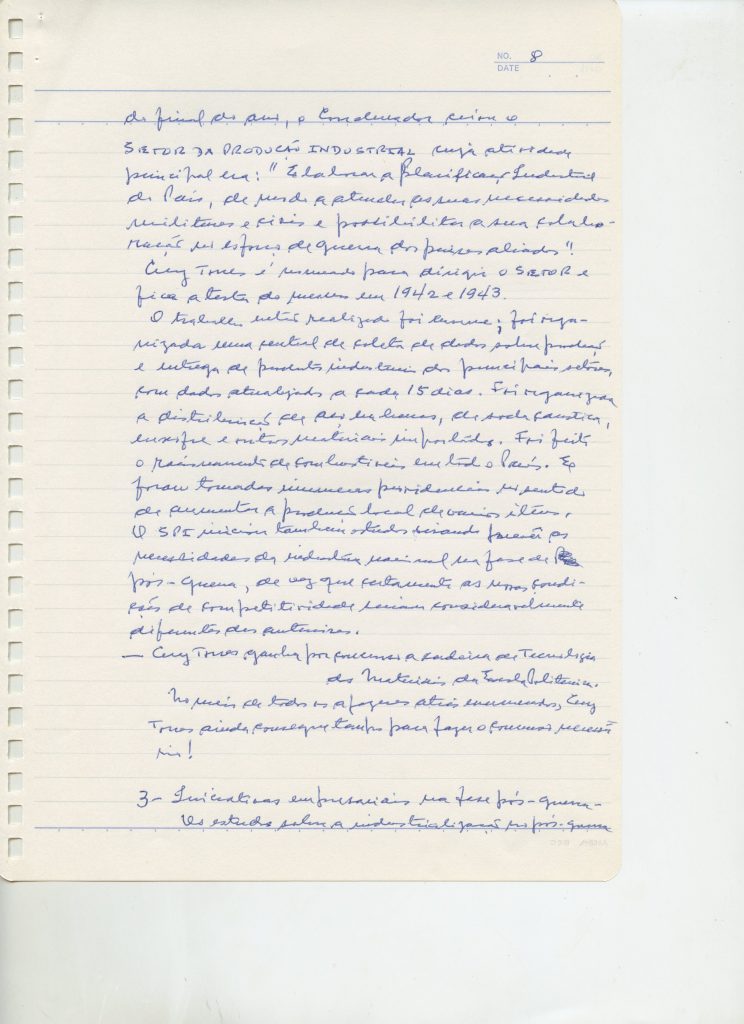 NO. 8
DATE
do final do ano, o Coordenador criou o
SETOR DA PRODUÇÃO INDUSTRIAL cuja atividade
principal era: "Elaborar a Planificação Industrial
do País, de modo a atender as suas necessidades
militares e civis e possibilitar a sua colabo-
ração no esforço de guerra dos países aliados".
Ary Torres é nomeado para dirigir o SETOR e
fica a testa do mesmo em 1942 e 1943.
O trabalho então realizado foi enorme; foi orga-
nizada uma central de coleta de dados sobre produção
e entrega de produtos industriais dos principais setores,
com dados atualizados a cada 15 dias. Foi organizada
a distribuição de de soda caustica,
enxofre e outros materiais importados. Foi feito
o racionamento de combustiveis em todo o País. E
foram tomadas inumeras providencias no sentido
de aumentar a produção local de varios itens.
O SPI iniciou também estudos visando prever as
necessidades da industria nacional na fase de
pós-guerra, de vez que certamente as novas condi-
ções de competitividade seriam consideravelmente
diferentes das anteriores.
— Ary Torres ganha por concurso a cadeira de Tecnologia
dos Materiais da Escola Politecnica.
No meio de todos os afazeres atrás enumerados, Ary
Torres ainda consegue tempo para fazer o concurso necessá-
rio!
3- Iniciativas empresariais na fase pós-guerra-
Os estudos sobre a industrialização no pós-guerra